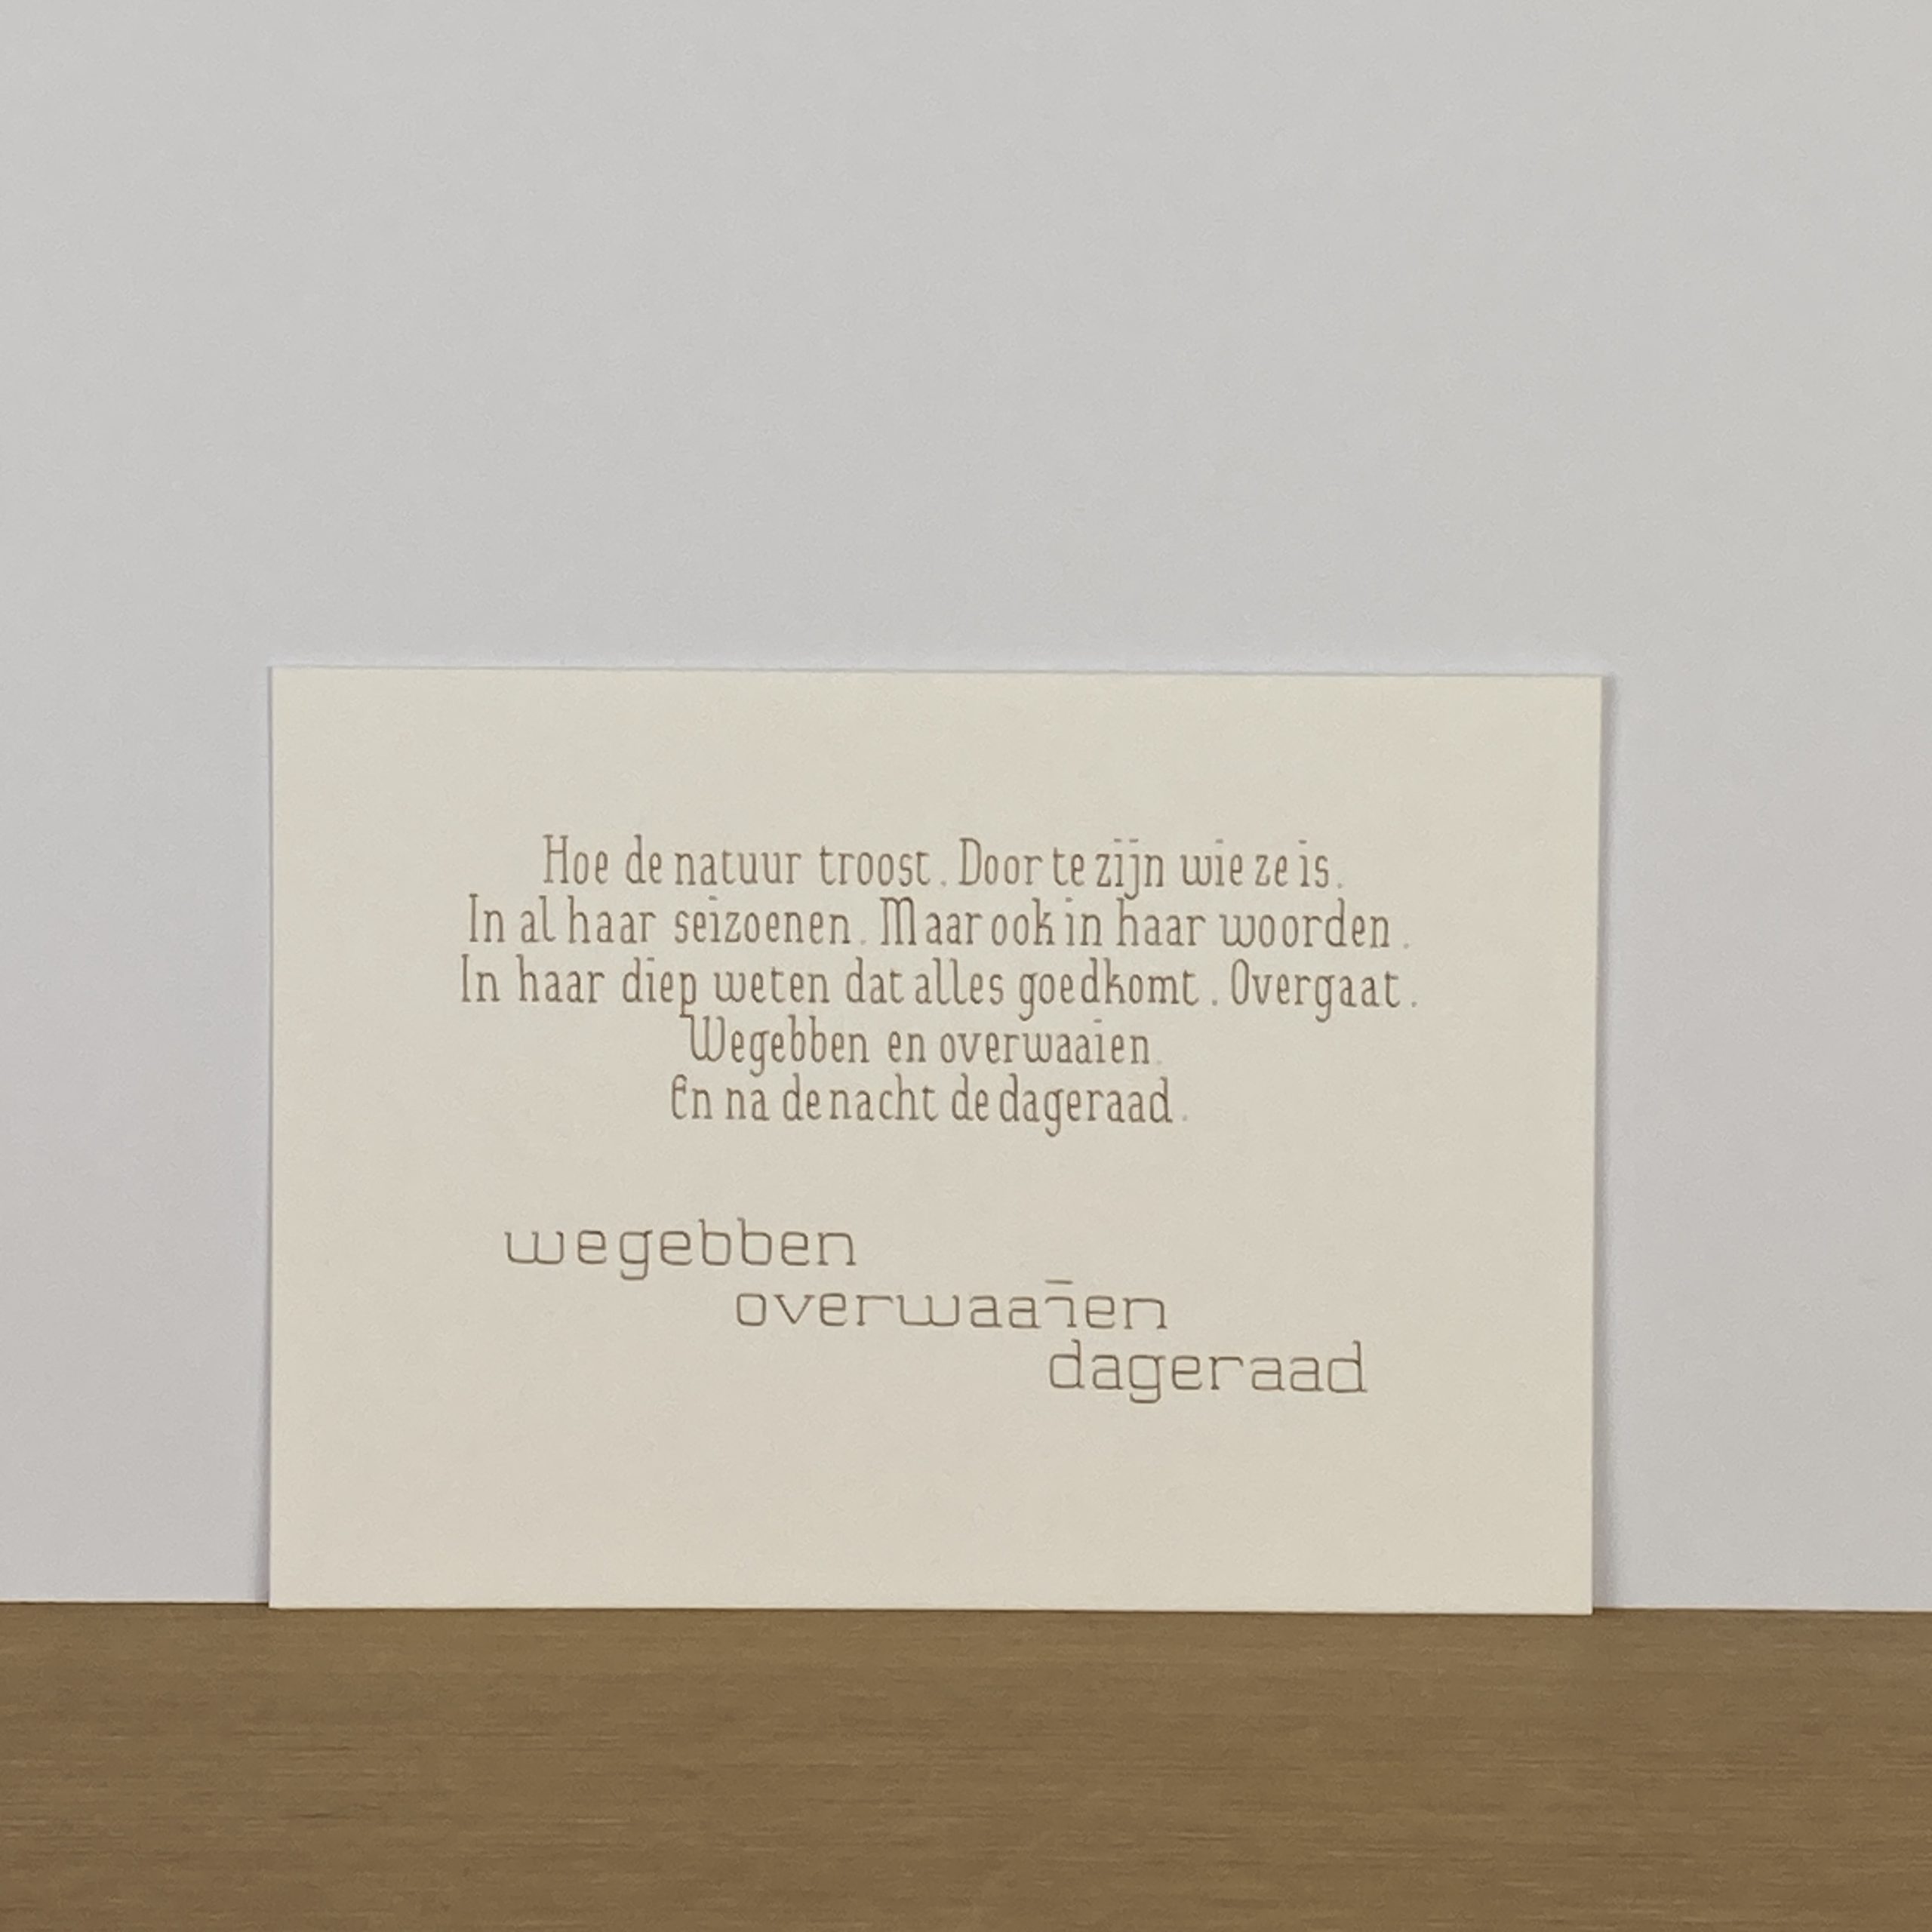 Hoe de natuur troost. Door te zijn wie ze is.
In al haar seizoenen. Maar ook in haar woorden.
In haar diep weten dat alles goedkomt. Overgaat.
Wegebben en overwaaien.
En na de nacht de dageraad.
wegebben
overwaaien
dageraad